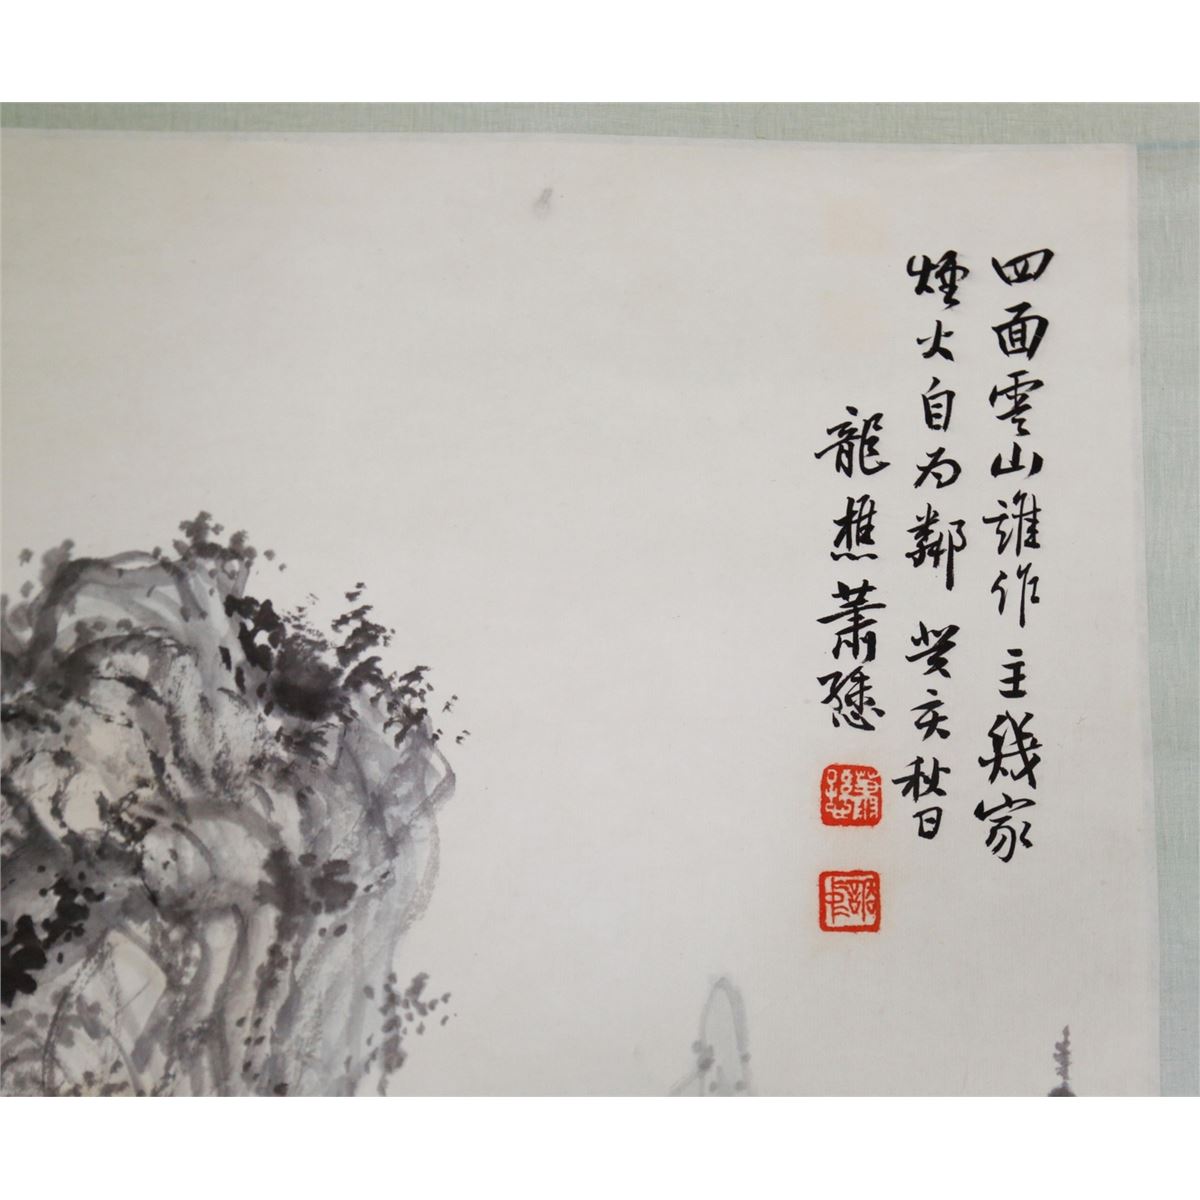 四面雲山誰作主幾家
煙火自为鄰 癸亥秋日
龍樵蕭愻
蕭愻